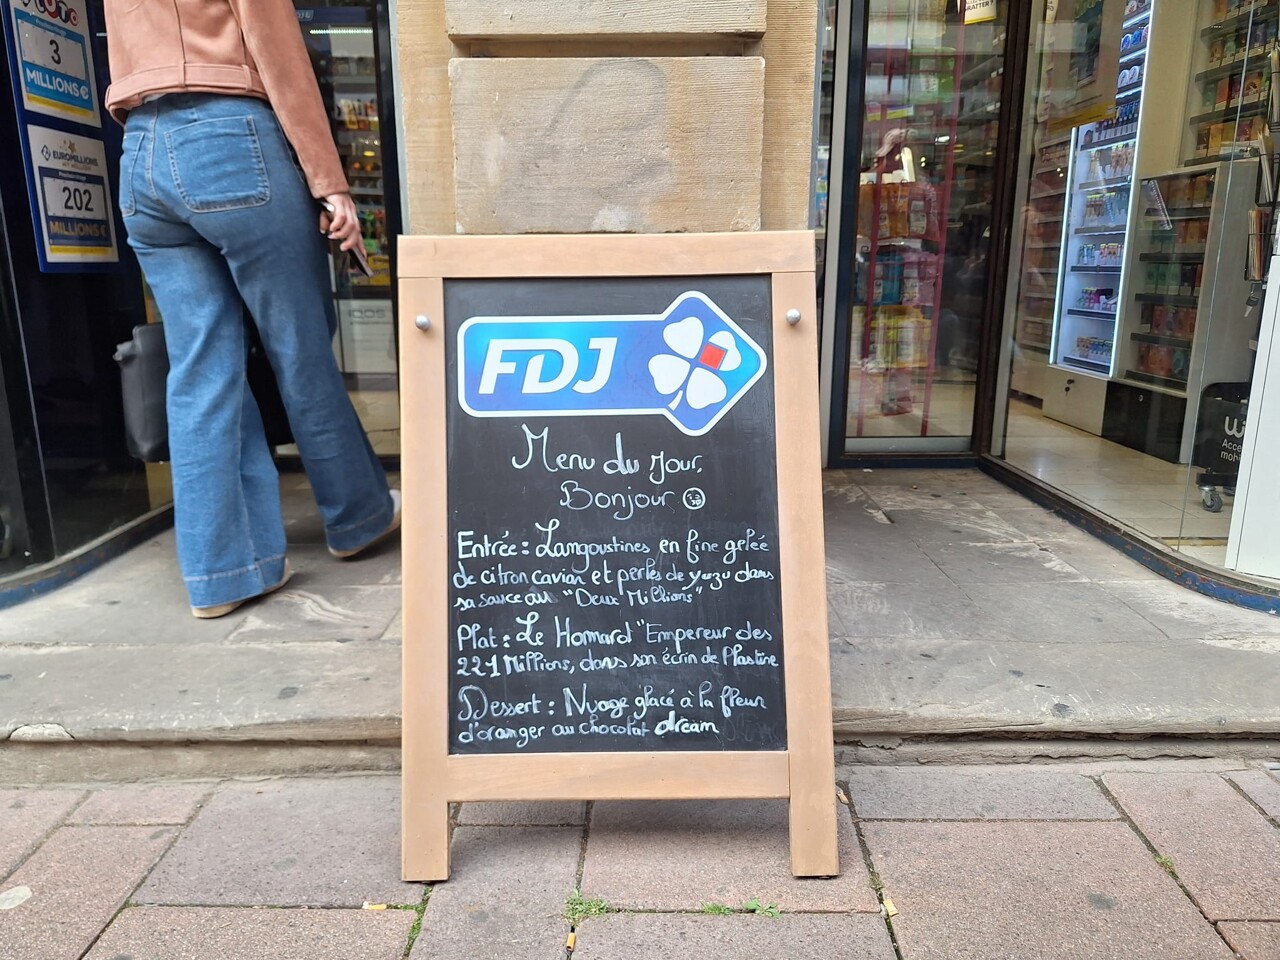 LOTO
3
MILLIONS€
EUROMILLIONS
MY MILLION
202
MILLIONS€
GRATTER ?
IQOS
FDJ
Menu du jour,
Bonjour
Entrée : Langoustines en fine gelée
de citron caviar et perles de yuzu dans
sa sauce au "Deux Millions"
Plat : Le Homard "Empereur des
221 Millions, dans son écrin de Platine
Dessert : Nuage glacé à la fleur
d'oranger au chocolat dream
Acce
mobi